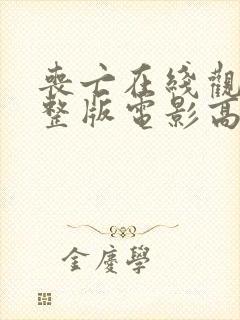 丧亡在线觀
整版電影高
金慶學